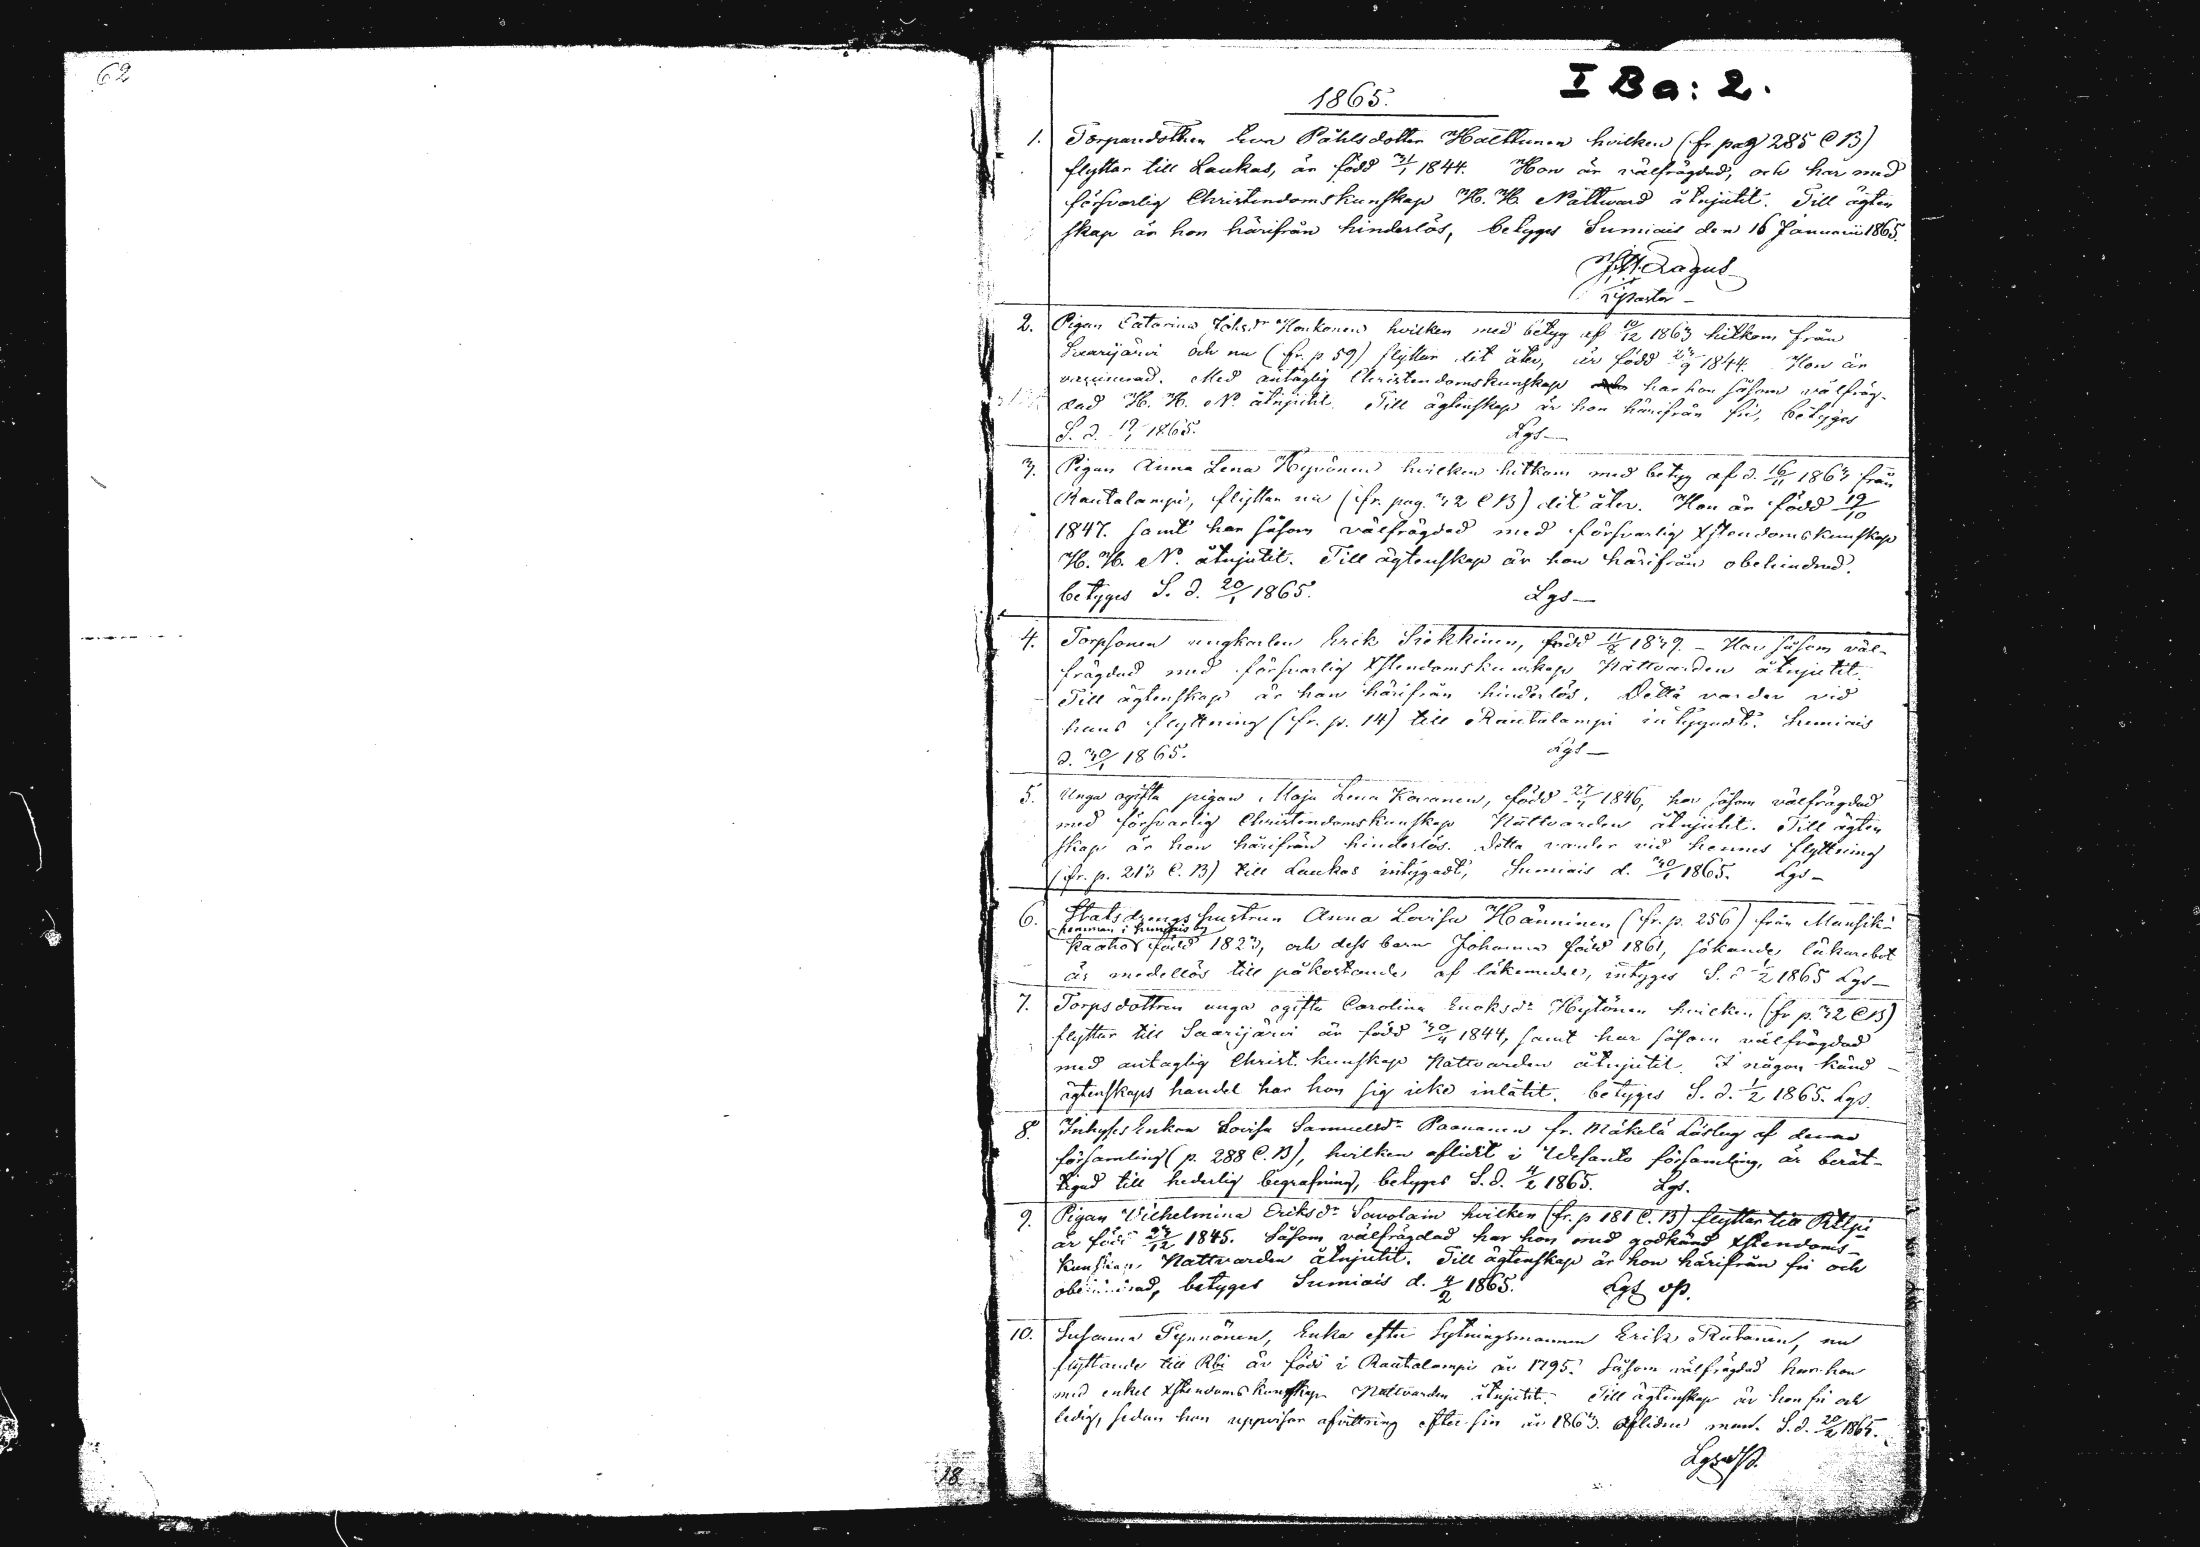 62
I Ba: 2.
1865.
1. Torparedottren Eva Påhlsdotter Halttunen hvilken (fr pag 285 C B)
flyttar till Laukas, är född 31/1 1844. Hon är välfrägdad, och har med
försvarlig Christendomskunskap H. H. Nattward åtnjutit. Till ägten
skap är hon härifrån hinderlös, betyges Sumiais den 16 Januarii 1865.
Lagus
Pastor
2. Pigan Catarina Johsdr Honkonen hvilken med betyg af 10/12 1863 hitkom från
Saarijärvi och nu (fr. p 59) flyttar dit åter, är född 23/9 1844. Hon är
vaccinerad. Med antaglig Christendomskunskap har hon såsom välfräg-
dad H. H. N. åtnjutit. Till ägtenskap är hon härifrån fri, betyges
S. d. 19/1 1865. Lgs
3. Pigan Anna Lena Hyvönen hvilken hitkom med betyg af d. 16/11 1863 från
Rautalampi, flyttar nu (fr. pag. 32 C B) dit åter. Hon är född 19/10
1847. samt har såsom välfrägdad med försvarlig Xstendomskunskap
H. H. N. åtnjutit. Till ägtenskap är hon härifrån obehindrad.
betyges S. d. 20/1 1865. Lgs
4. Torpsonen ungkarlen Erik Siekkinen, född 11/8 1839. Har såsom väl-
frägdad med försvarlig Xstendomskunskap Nattvarden åtnjutit.
Till ägtenskap är han härifrån hinderlös. Detta varder vid
hans flyttning (fr. p. 14) till Rautalampi intygadt. Sumiais
d. 30/1 1865. Lgs
5. Unga ogifta pigan Maja Lena Kovanen, född 27/7 1846, har såsom välfrägdad
med försvarlig Christendomskunskap Nattvarden åtnjutit. Till ägten
skap är hon härifrån hinderlös. Detta varder vid hennes flyttning
(fr. p. 213 C. B) till Laukas intygadt, Sumiais d. 30/1 1865. Lgs
6. Statsdrengs hustrun Anna Lovisa Hänninen (fr. p. 256) från Mansik-
hemman i by
kaaho född 1823, och dess barn Johanna född 1861, sökande läkarebot
är medellös till påkostande af läkemedel, intyges S. d 1/2 1865 Lgs
7. Torpsdottren unga ogifta Carolina Enoksdr Hytönen hvilken (fr p. 32 C B)
flyttar till Saarijärvi är född 30/4 1844, samt har såsom välfrägdad
med antaglig Christ. kunskap Nattvarden åtnjutit. I någon känd
ägtenskaps handel har hon sig icke inlåtit, betyges S. d. 1/2 1865. Lgs.
8. Inhyses Enkan Lovisa Samuelsdr Paananen fr. Mäkelä Löstug af denna
församling (p. 288 C. B), hvilken aflidit i Wesanto församling, är berät-
tigad till hederlig begrafning, betyges S. d. 4/2 1865. Lgs.
9. Pigan Vilhelmina Eriksdr Savolain hvilken (fr. p 181 C. B) flyttar till Rtlpi
är född 23/12 1845. Såsom välfrägdad har hon med godkänd Xstendoms-
kunskap Nattvarden åtnjutit. Till ägtenskap är hon härifrån fri och
obehindrad, betyges Sumiais d. 4/2 1865. Lgs vp.
10. Susanna Pynnönen, Enka efter Sytningsmannen Erik Rutanen, nu
flyttande till Rbi är född i Rautalampi år 1795. Såsom välfrägdad har hon
med enkel Xstendomskunskap Nattvarden åtnjutit. Till ägtenskap är hon fri och
ledig, sedan hon uppvisar afvittring efter sin år 1863. aflidne man. S. d. 20/2 1865.
Lgs
18